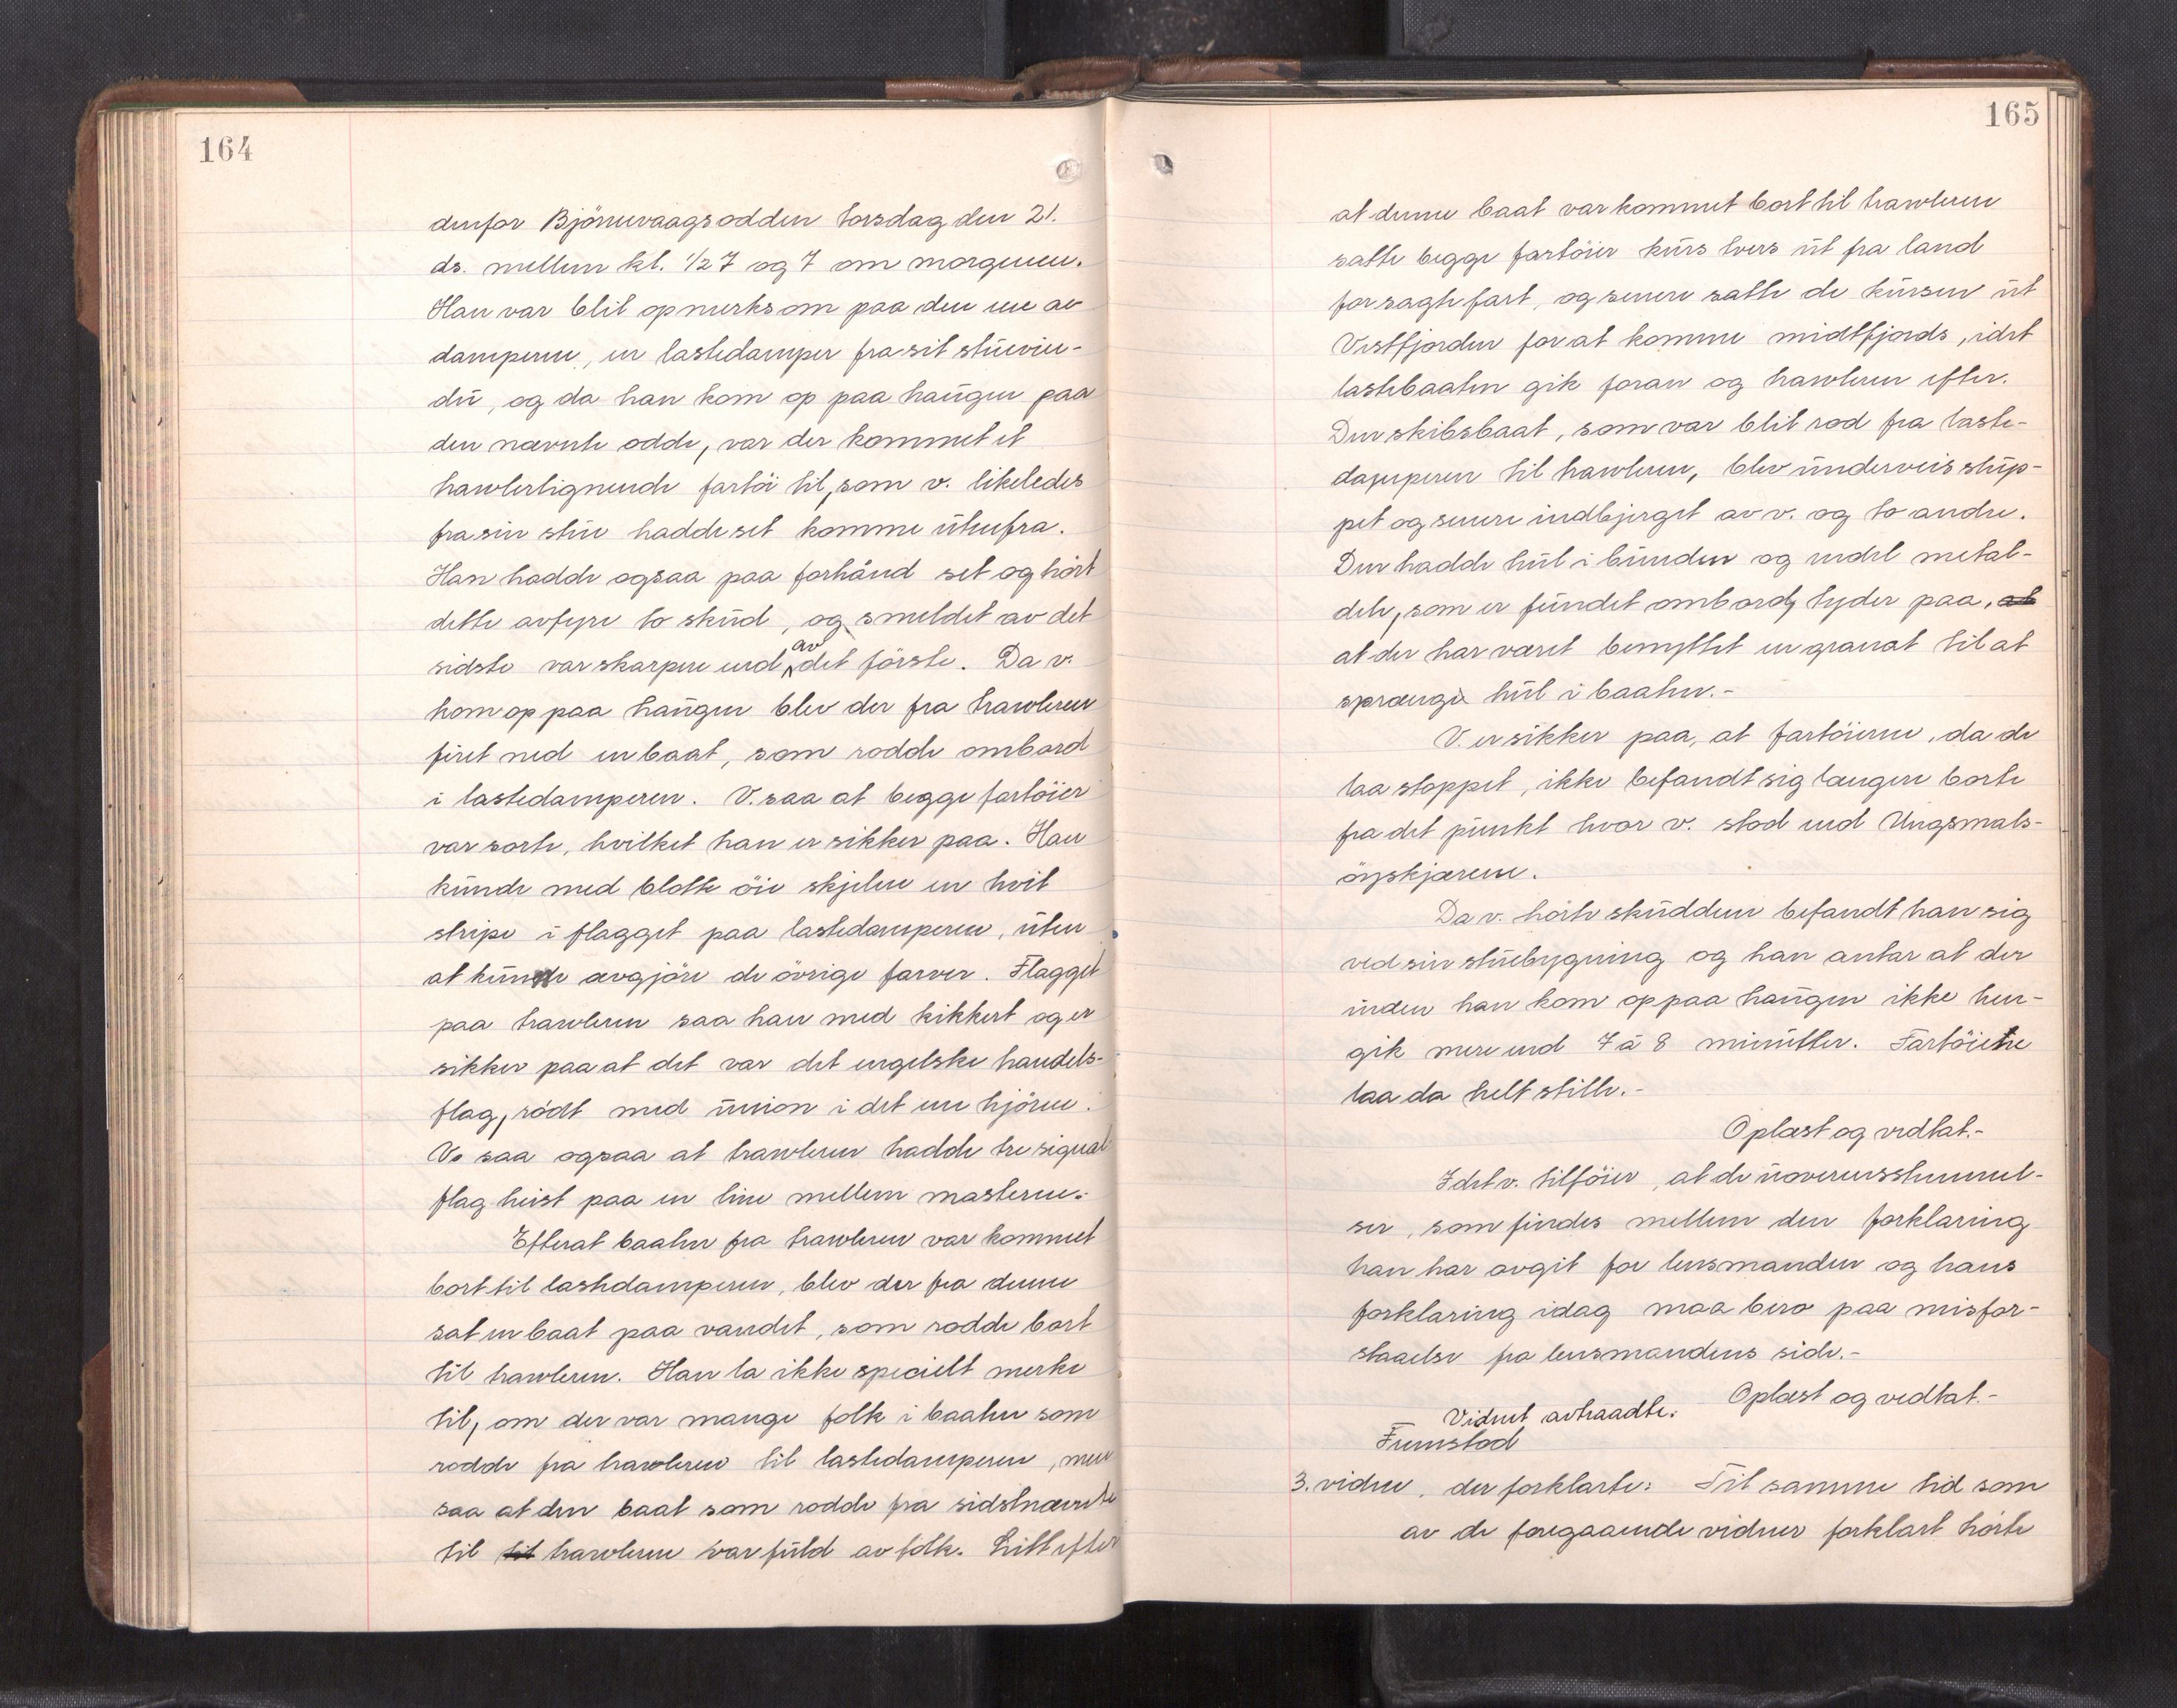 164
denfor Bjönnvaagsodden torsdag den 21.
ds. mellem kl. 1/2 7 og 7 om morgenen.
Han var blit opmerksom paa den ene av
damperne, en lastedamper fra sit stuevin-
du, og da han kom op paa haugen paa
den nævnte odde, var der kommet et
trawlerlignende fartöi til, som v. likeledes
fra sin stue hadde set komme utenfra.
Han hadde ogsaa paa forhånd set og hört
dette avfyre to skud, og smeldet av det
sidste var skarpere end av det förste. Da v.
kom op paa haugen blev der fra trawleren
firet ned en baat, som rodde ombord
i lastedamperen. V. saa at begge fartöier
var sorte, hvilket han er sikker paa. Han
kunde med blotte öie skjelne en hvit
stripe i flagget paa lastedamperen, uten
at kunde avgjöre de övrige farver. Flagget
paa trawleren saa han med kikkert og er
sikker paa at det var det engelske handels-
flag, rödt med union i det ene hjörne.
V. saa ogsaa at trawleren hadde tre signal
flag heist paa en line mellem masterne.
Efterat baaten fra trawleren var kommet
bort til lastedamperen, blev der fra denne
sat en baat paa vandet, som rodde bort
til trawleren. Han la ikke specielt merke
til, om der var mange folk i baaten som
rodde fra trawleren til lastedamperen, men
saa at den baat som rodde fra sidstnævnte
til til trawleren var fuld av folk. Litt efter
165
at denne baat var kommet bort til trawleren
satte begge fartöier kurs tvers ut fra land
for sagte fart, og senere satte de kursen ut
Vestfjorden for at komme midtfjords, idet
lastebaaten gik foran og trawleren efter.
Den skibsbaat, som var blit rod fra laste-
damperen til trawleren, blev underveis slup-
pet og senere indbjerget av v. og to andre.
Den hadde hul i bunden og endel metal-
dele, som er fundet ombord, tyder paa, at
at der har været benyttet en granat til at
sprænge hul i baaten.-
V. er sikker paa, at fartöierne, da de
laa stoppet, ikke befandt sig længere borte
fra det punkt hvor v. stod end Ungsmals-
öyskjærene.
Da v. hörte skuddene befandt han sig
ved sin stuebygning og han antar at der
inden han kom op paa haugen ikke hen-
gik mere end 7 à 8 minutter. Fartöiene
laa da helt stille.-
Oplæst og vedtat.-
Idet v. tilföier, at de uoverensstemmel-
ser, som findes mellem den forklaring
han har avgit for lensmanden og hans
forklaring idag maa bero paa misfor-
staaelse fra lensmandens side.-
Oplæst og vedtat.-
Vidnet avtraadte.
Fremstod
3. vidne, der forklarte: Til samme tid som
av de foregaaende vidner forklart hörte